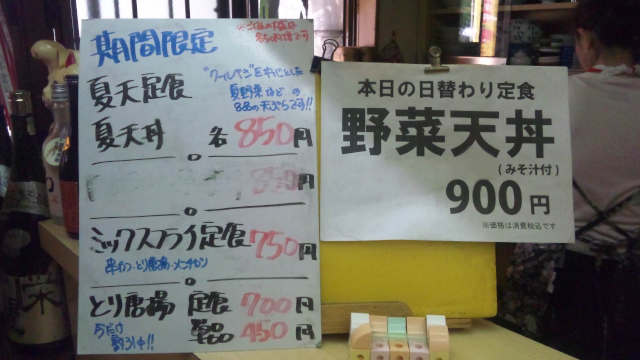 期間限定
夏天定食
夏野菜などの
8品の天ぷらです!!
夏天丼 各 850円
円
ミックスフライ定食 750円
串カツ・とり唐揚・メンチカツ
とり唐揚 定食 700円
今だけ
割引中!!
単品 450円
本日の日替わり定食
野菜天丼
(みそ汁付)
900円
※価格は消費税込です